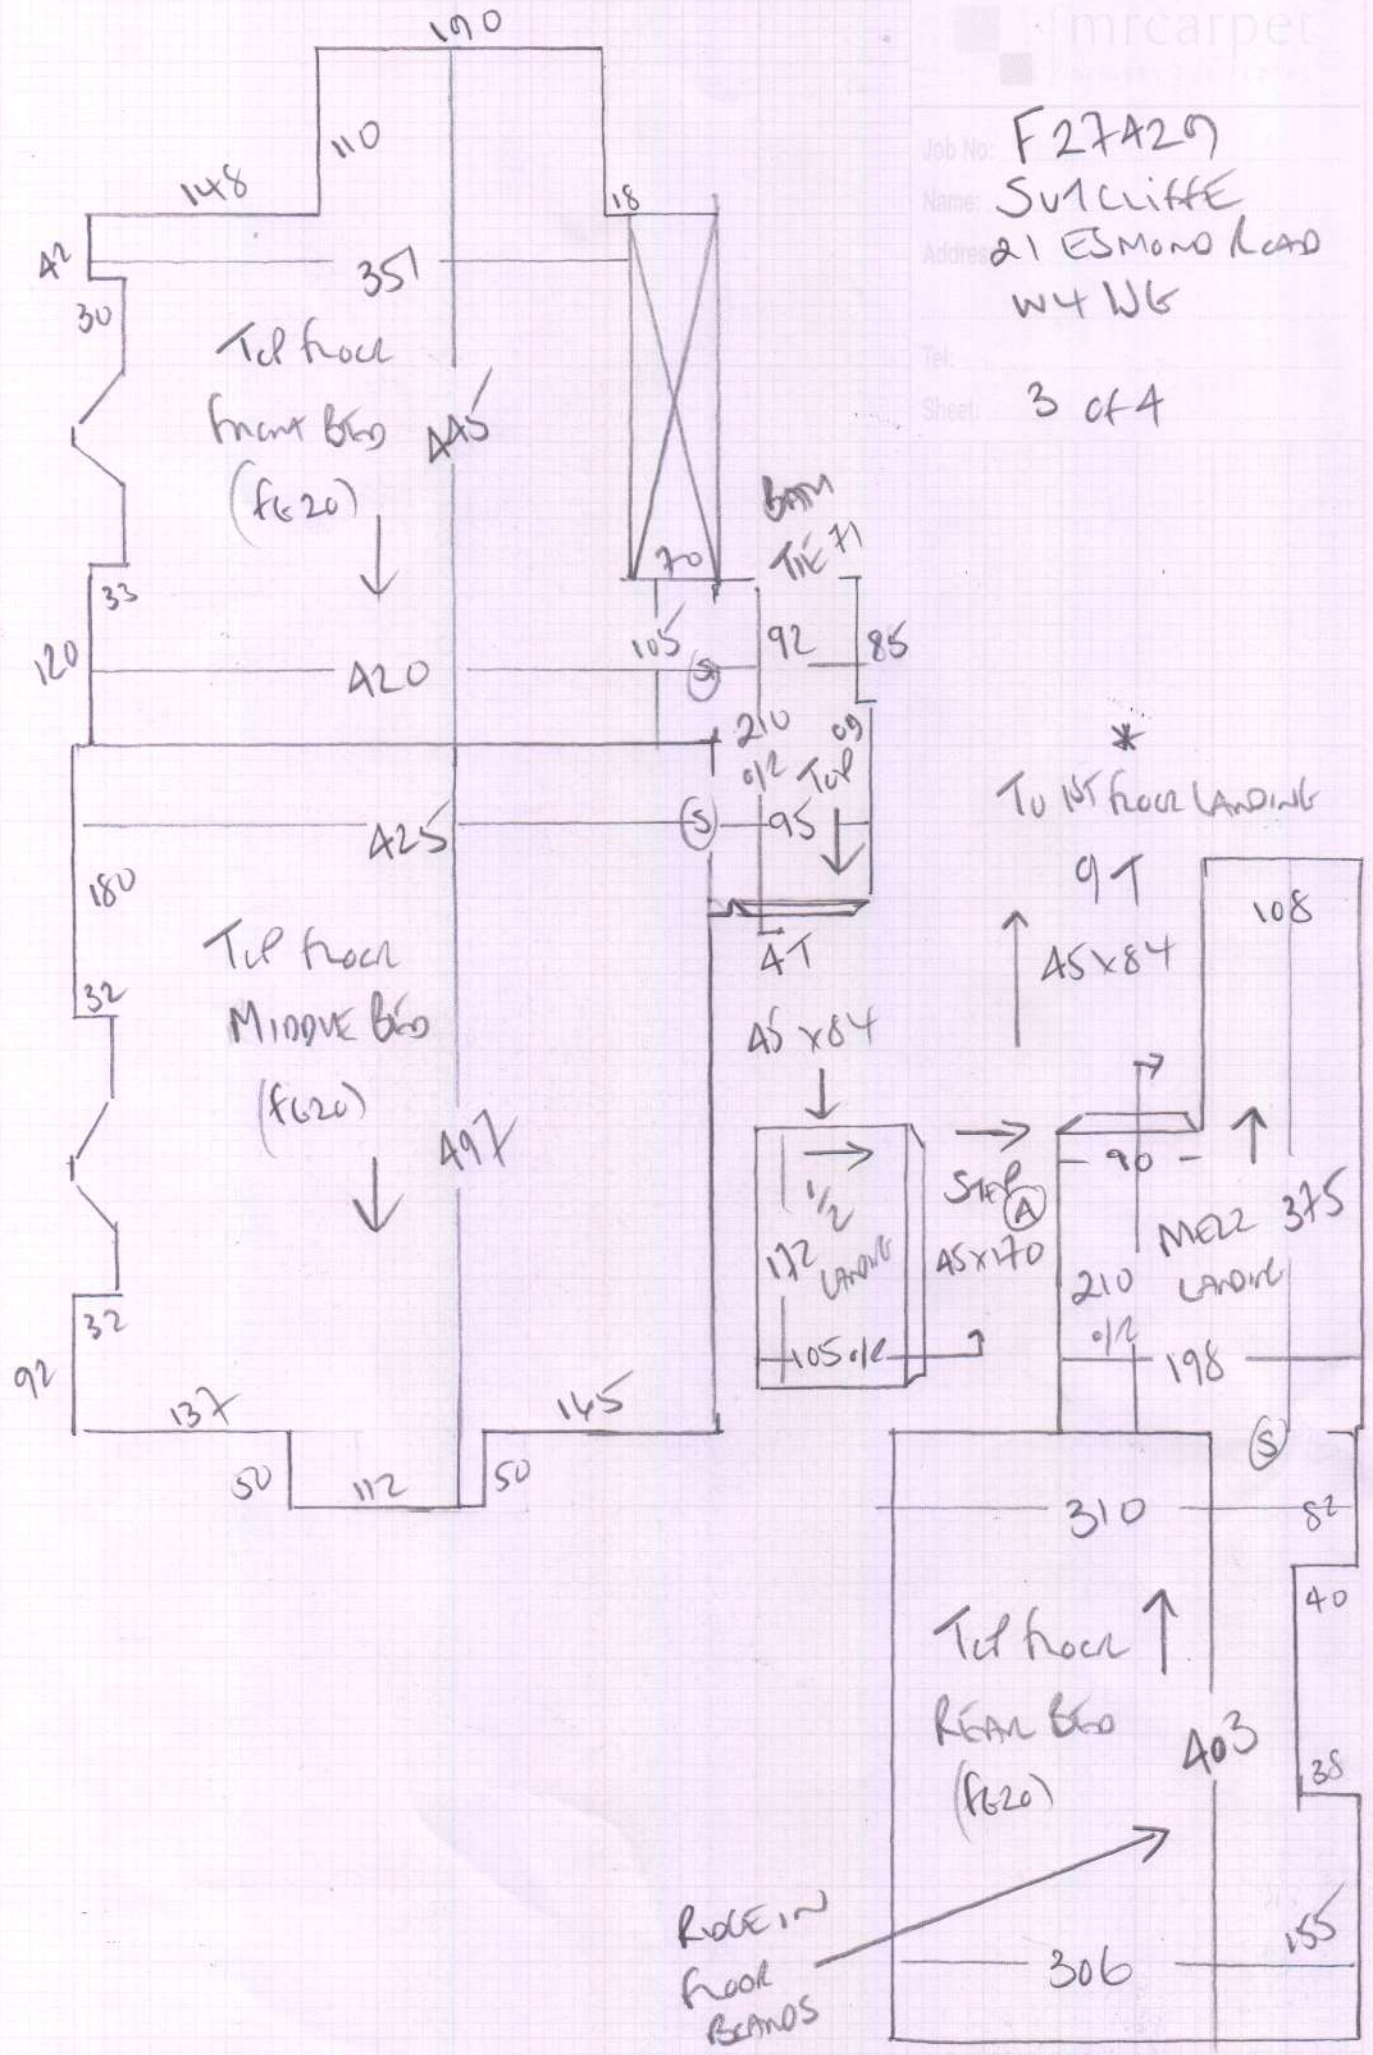 mrcarpet
Job No: F27429
Name: SUTCLIFFE
Address 21 ESMOND ROAD
W4 1JG
Tel:
Sheet: 3 of 4
190
110
148
18
42
351
30
Top floor
Front Bed
(FG20)
445
33
120
420
70
105
S
BATH
TIE 71
92
85
210
o/R
09
TOP
425
S
95
180
32
Top floor
MIDDLE BED
(FG20)
497
32
92
137
145
50
112
50
4T
45 x 84
1/2
LANDING
172
105 o/R
STEP
A
45x170
*
TO 1ST FLOOR LANDING
9T
45x84
108
90
MEZZ
LANDING
375
210
o/R
198
S
310
82
40
Top floor
REAR BED
(FG20)
403
38
RIDGE IN
FLOOR
BOARDS
306
155